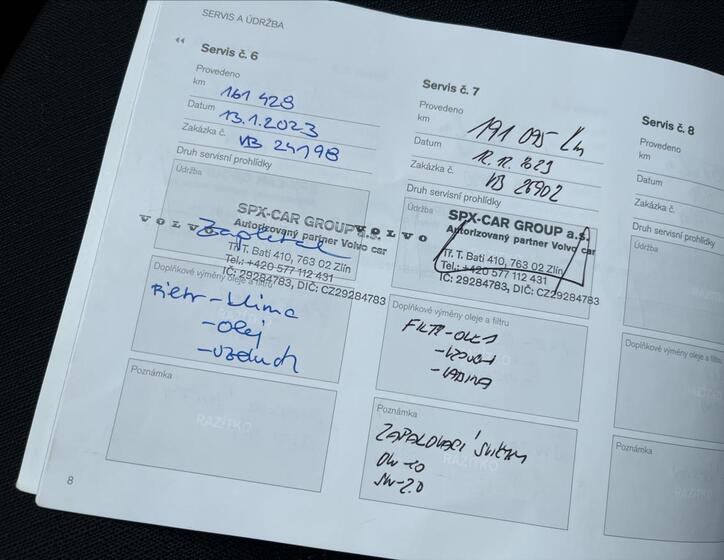 SERVIS A ÚDRŽBA
Servis č. 6
Provedeno
km 161 428
Datum 13.1.2023
Zakázka č. VB 24198
Druh servisní prohlídky
Údržba
VOLVO
SPX-CAR GROUP a.s.
Autorizovaný partner Volvo car
Tř. T. Bati 410, 763 02 Zlín
Tel.: +420 577 112 431
IČ: 29284783, DIČ: CZ29284783
Zapletal
Doplňkové výměny oleje a filtru
Filetr-klima
-olej
-vzduch
Poznámka
RAZÍTKO
8
Servis č. 7
Provedeno
km 191 095 km
Datum
Zakázka č. VB 26902
Druh servisní prohlídky
Údržba
VOLVO
SPX-CAR GROUP a.s.
Autorizovaný partner Volvo car
Tř. T. Bati 410, 763 02 Zlín
Tel.: +420 577 112 431
IČ: 29284783, DIČ: CZ29284783
Doplňkové výměny oleje a filtru
FILTR-OLEJ
-VZDUCH
-KABINA
Poznámka
ZAPALOVACÍ SVÍČKY
RAZÍTKO
0W-20
Servis č. 8
Provedeno
km
Datum
Zakázka č.
Druh servisní
Údržba
Doplňkové výměny
Poznámka